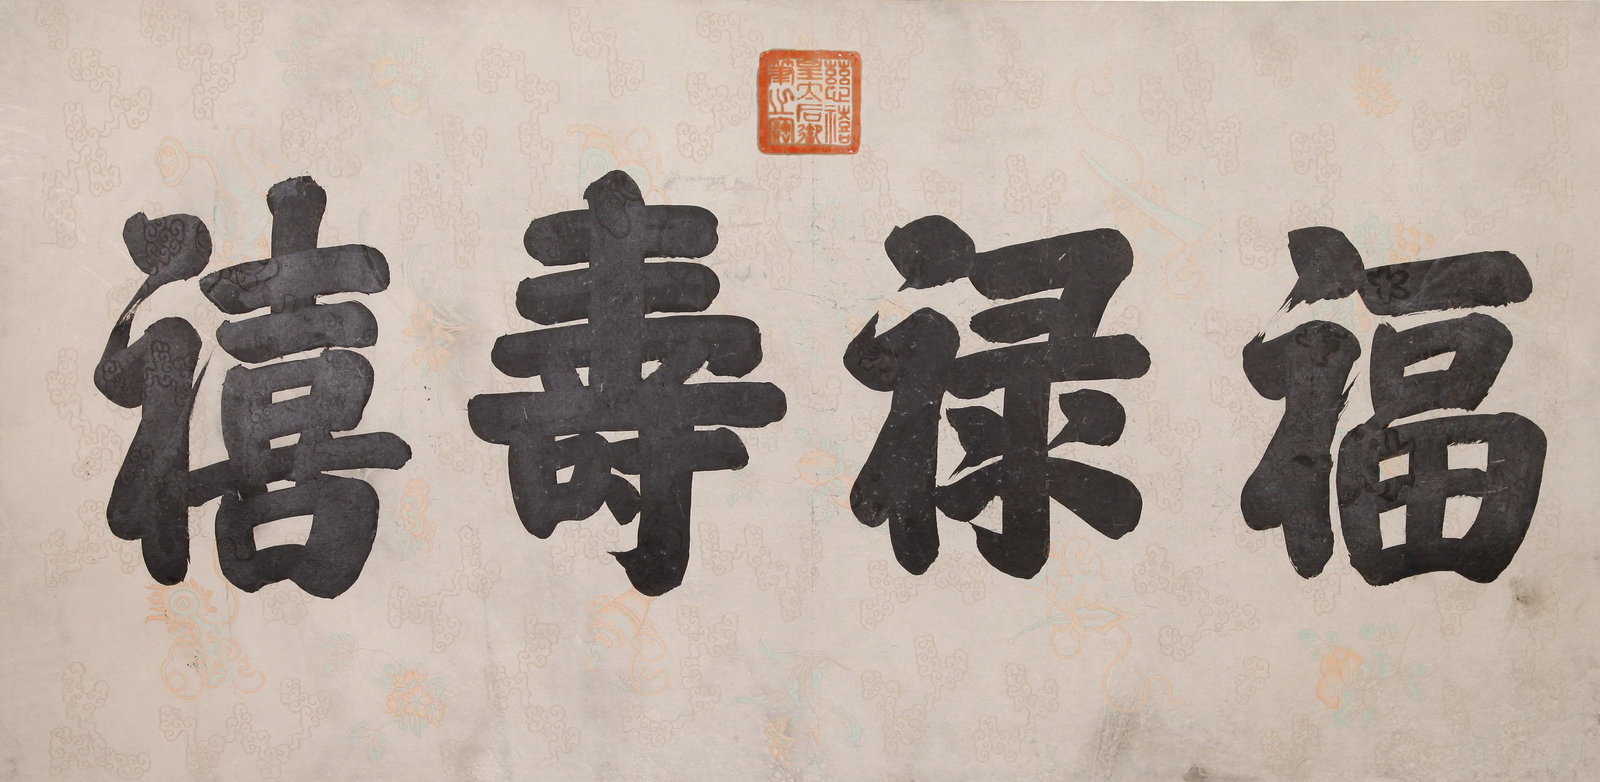 慈禧
皇太后御
筆之寶
福祿壽禧